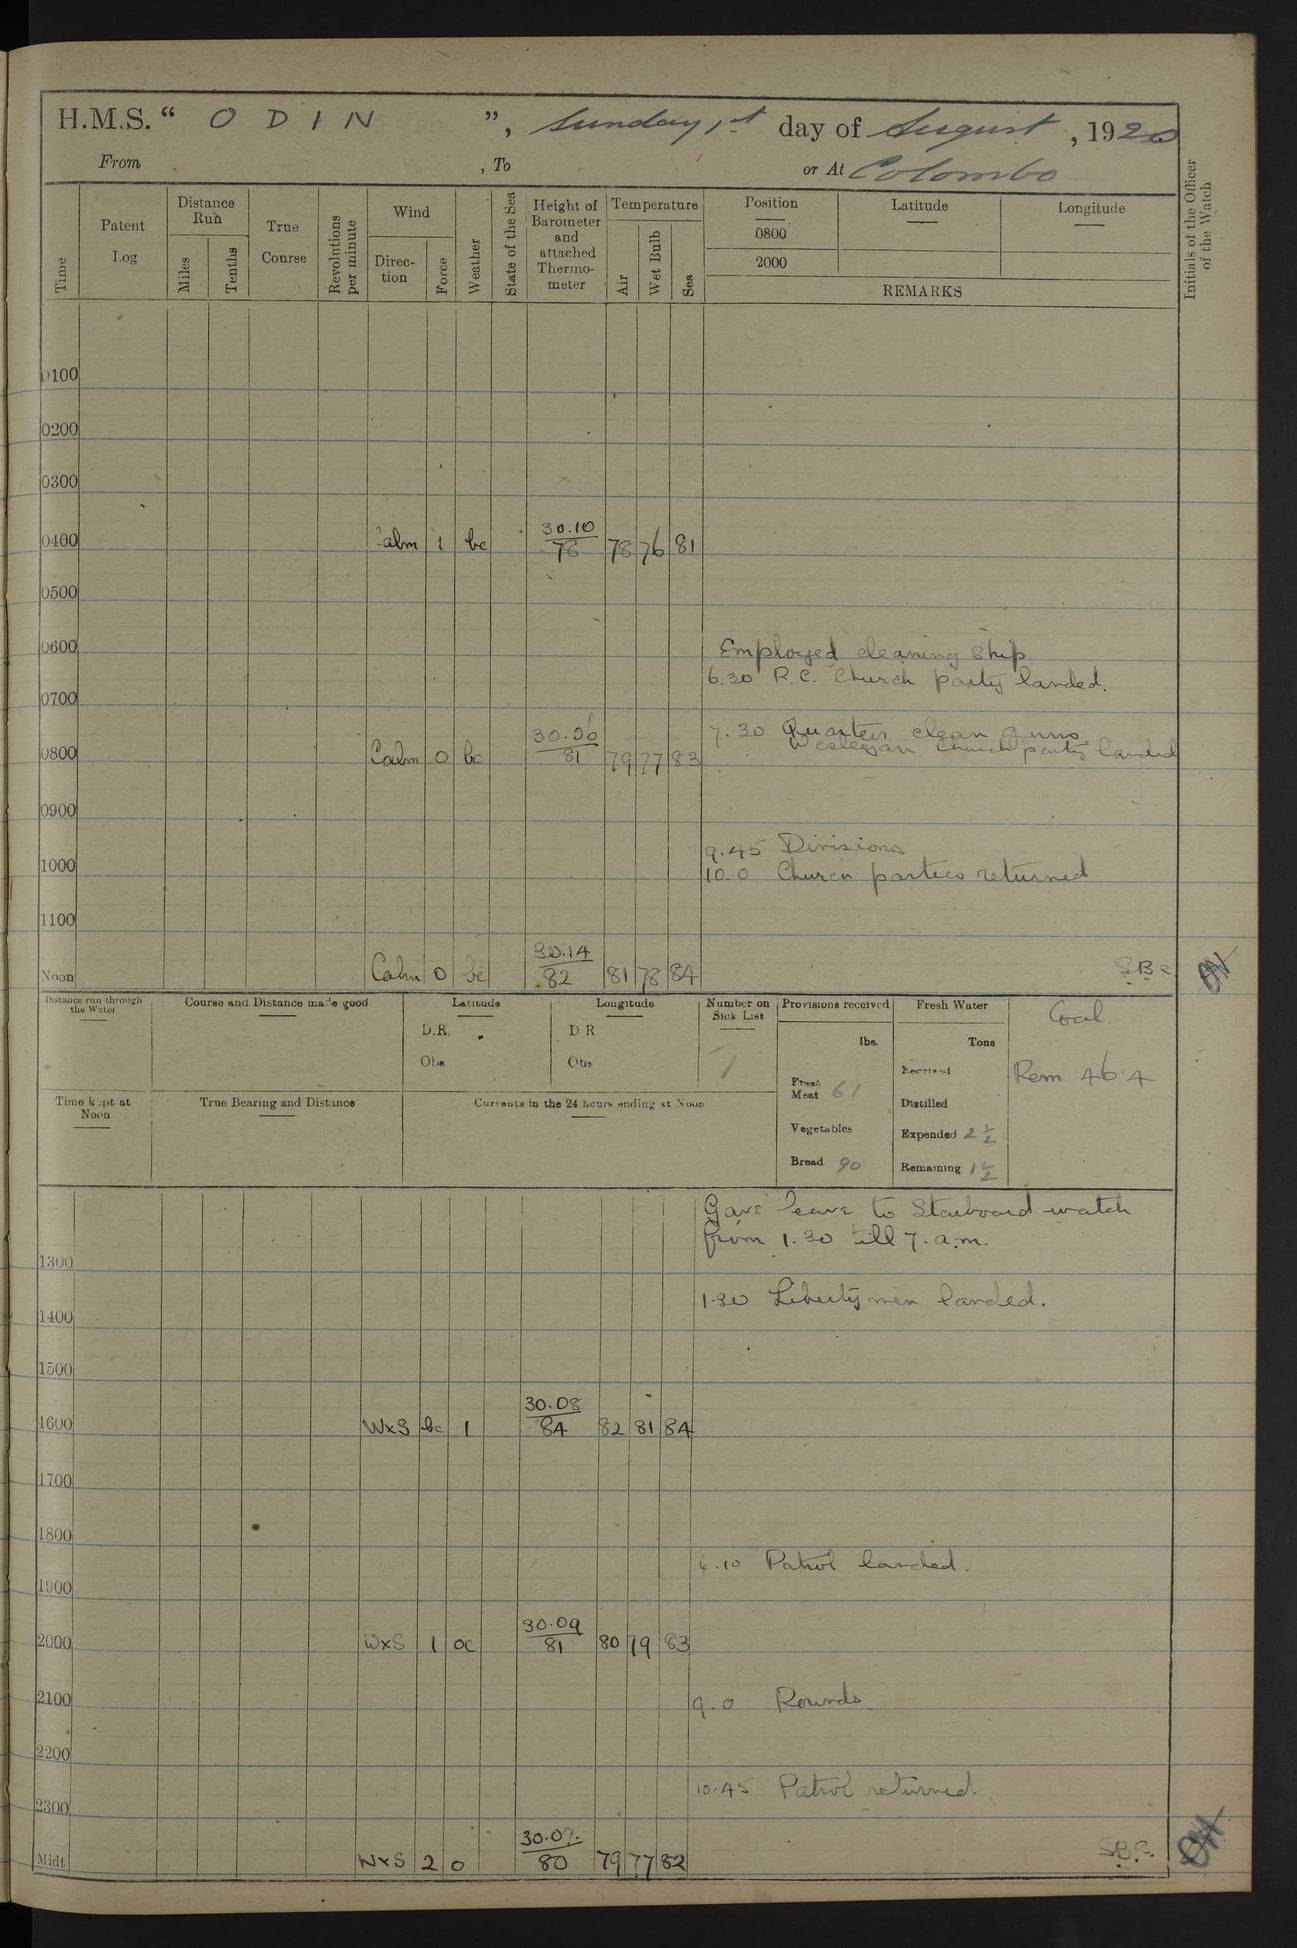 H.M.S. “ ODIN ”, Sunday 1st day of August, 1920
From , To or At Colombo
Time
Patent Log
Distance Run
Miles
Tenths
True Course
Revolutions per minute
Wind
Direction
Force
Weather
State of the Sea
Height of Barometer and attached Thermometer
Temperature
Air
Wet Bulb
Sea
Position
0800
2000
Latitude
Longitude
REMARKS
Initials of the Officer of the Watch
0100
0200
0300
0400 Calm 1 bc 30.10/78 78 76 81
0500
0600 Employed cleaning Ship
6.30 R.C. Church party landed.
0700
7.30 Quarters clean guns
Wesleyan Church party landed
0800 Calm 0 bc 30.06/81 79 77 83
0900
9.45 Divisions
1000 10.0 Church parties returned
1100
Noon Calm 0 bc 30.14/82 81 78 84
Distance run through the Water
Course and Distance made good
Latitude
D.R.
Obs
Longitude
D R
Obs
Number on Sick List
1
Provisions received
lbs.
Fresh Meat 61
Vegetables
Bread 90
Fresh Water
Tons
Received
Distilled
Expended 2 1/2
Remaining 1 1/2
Coal
Rem 46.4
Time kept at Noon
True Bearing and Distance
Currents in the 24 hours ending at Noon
Gave leave to Starboard watch
from 1.30 till 7. a.m.
1300
1.30 Liberty men landed.
1400
1500
1600 WxS bc 1 30.08/84 82 81 84
1700
1800
6.10 Patrol landed.
1900
2000 WxS 1 oc 30.09/81 80 79 83
2100 9.0 Rounds
2200
10.45 Patrol returned.
2300
Midt WxS 2 o 30.07/80 79 77 82